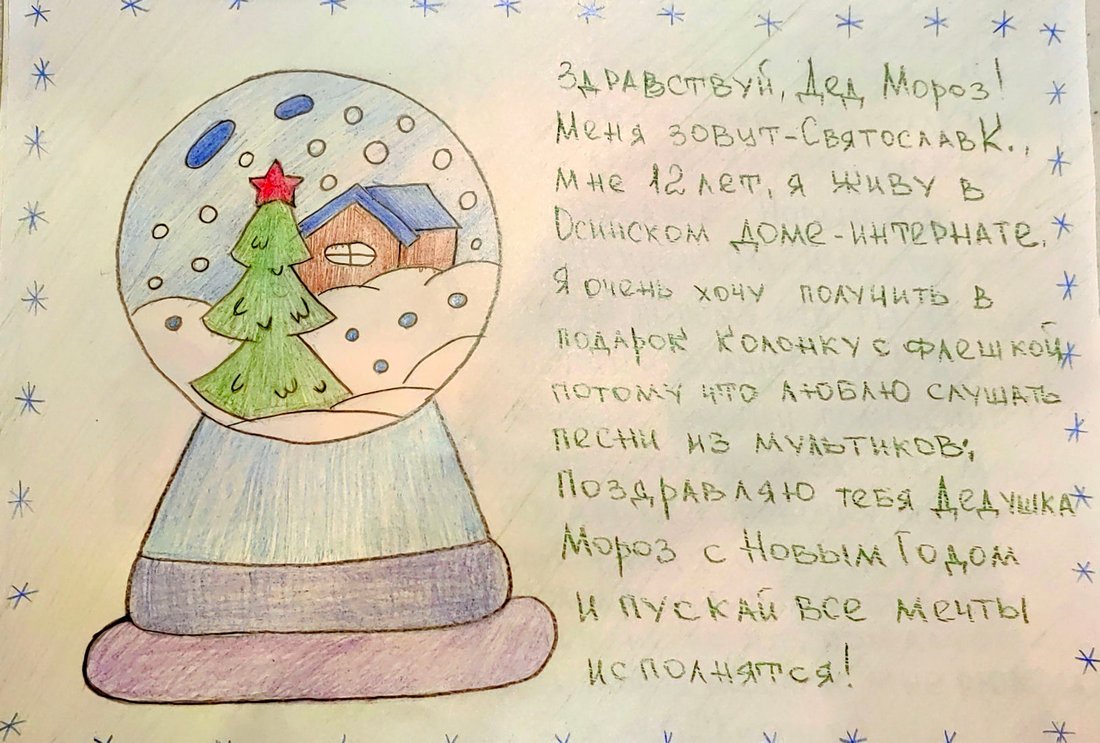 Здравствуй, Дед Мороз!
Меня зовут-Святослав К.,
мне 12 лет, я живу в
Осинском доме-интернате.
Я очень хочу получить в
подарок колонку с флешкой
потому что люблю слушать
песни из мультиков;
Поздравляю тебя Дедушка
Мороз с Новым Годом
и пускай все мечты
исполнятся!